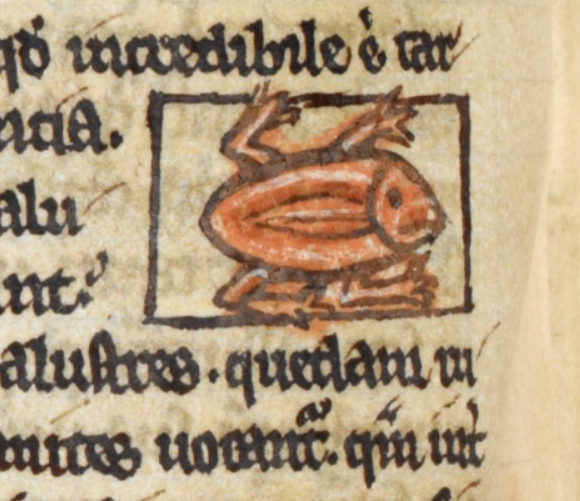 qd̄ incredibile ē tar
ricia.
alu
nt.
alustres. quedam in
mites uocant᷑. qm̄ int̄